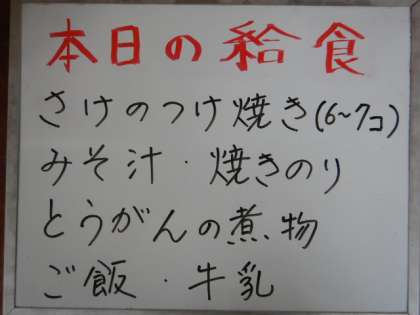 本日の給食
さけのつけ焼き(6~7コ)
みそ汁・焼きのり
とうがんの煮物
ご飯・牛乳